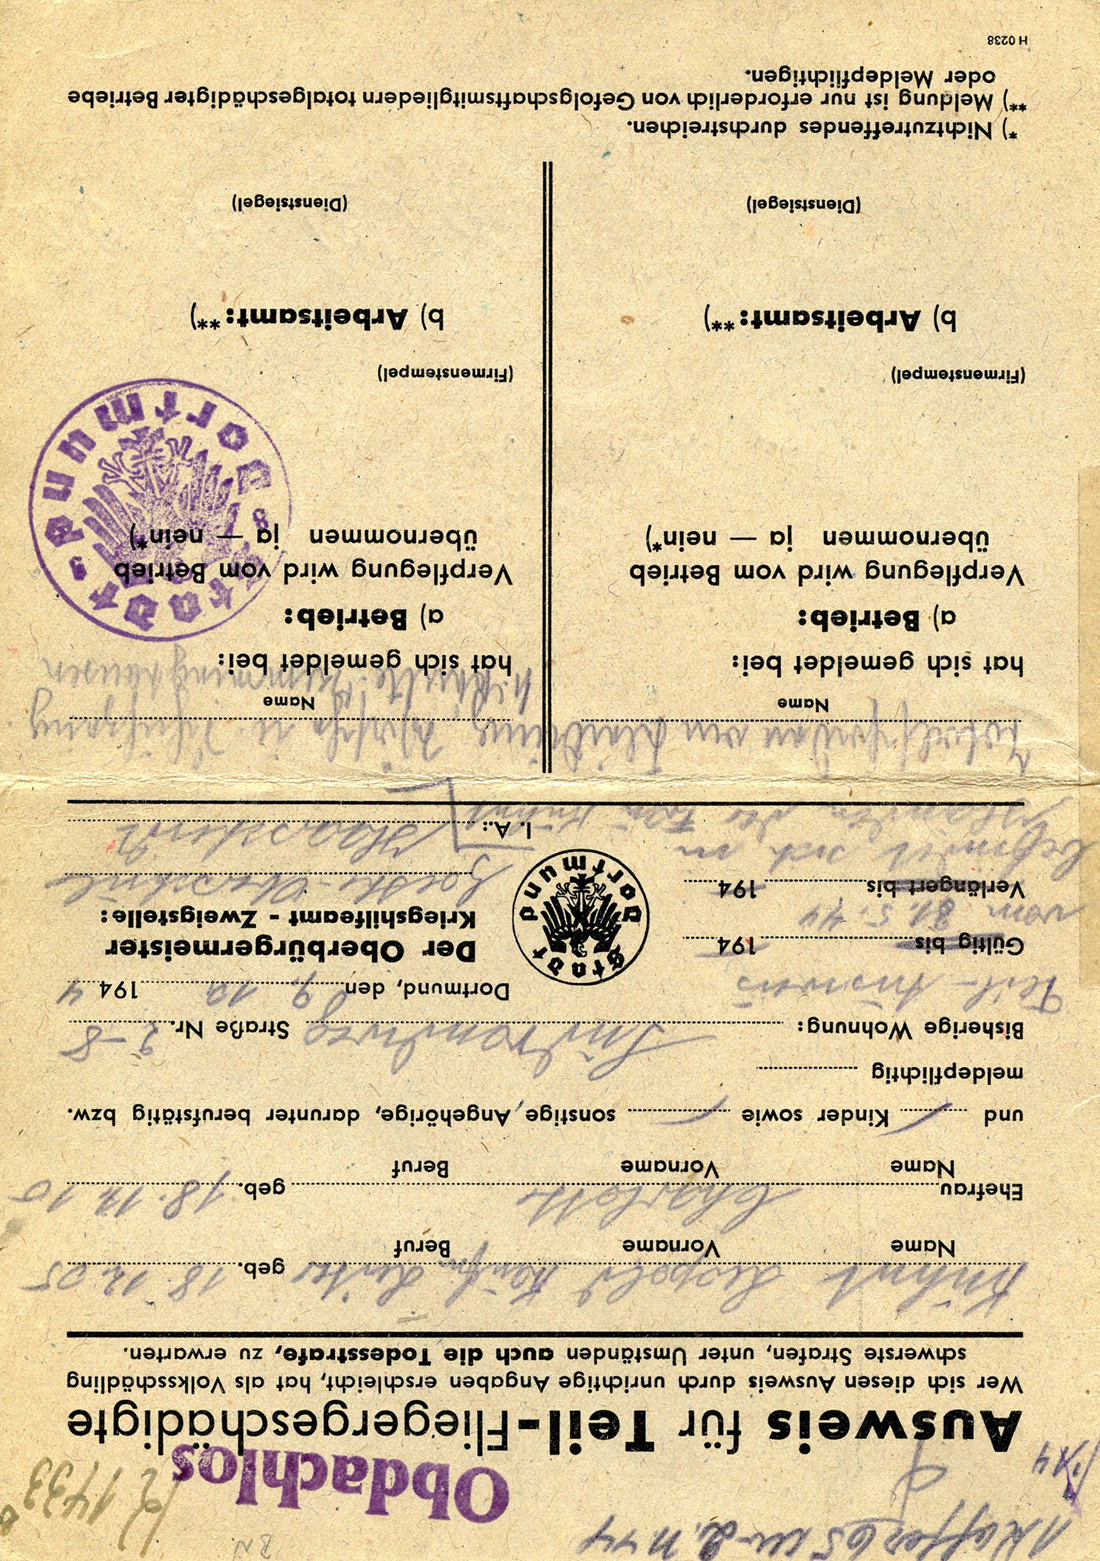 Obdachlos
Ausweis für Teil-Fliegergeschädigte
Wer sich diesen Ausweis durch unrichtige Angaben erschleicht, hat als Volksschädling
schwerste Strafen, unter Umständen auch die Todesstrafe, zu erwarten.
Kühnt Leopold geb. 18.12.05
Name Vorname Beruf
Ehefrau Charlotte geb. 18.12.10
Name Vorname Beruf
und Kinder sowie sonstige Angehörige, darunter berufstätig bzw.
meldepflichtig
Bisherige Wohnung: Straße Nr. 2-8
Teil-Ausweis
Dortmund, den 9.10 1944
Gültig bis 194
vom 31.5.44
Verlängert bis 194
befindet sich in
Händen der Frau Kühnt
Stadt Dortmund
Der Oberbürgermeister
Kriegshilfeamt - Zweigstelle:
Goethe-Oberschule
I. A.:
Totalschaden an Kleidung, Wäsche u.
Name
hat sich gemeldet bei:
a) Betrieb:
Verpflegung wird vom Betrieb
übernommen ja — nein*)
(Firmenstempel)
b) Arbeitsamt:**)
(Dienstsiegel)
Name
hat sich gemeldet bei:
a) Betrieb:
Verpflegung wird vom Betrieb
übernommen ja — nein*)
Stadt Dortmund
(Firmenstempel)
b) Arbeitsamt:**)
(Dienstsiegel)
*) Nichtzutreffendes durchstreichen.
**) Meldung ist nur erforderlich von Gefolgschaftsmitgliedern totalgeschädigter Betriebe
oder Meldepflichtigen.
H 0238